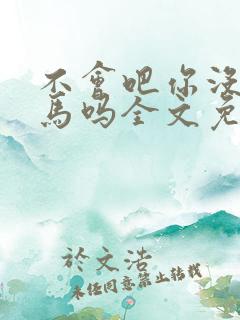 不會吧你没
馬吗全文免
於文浩
未经同意禁止转载